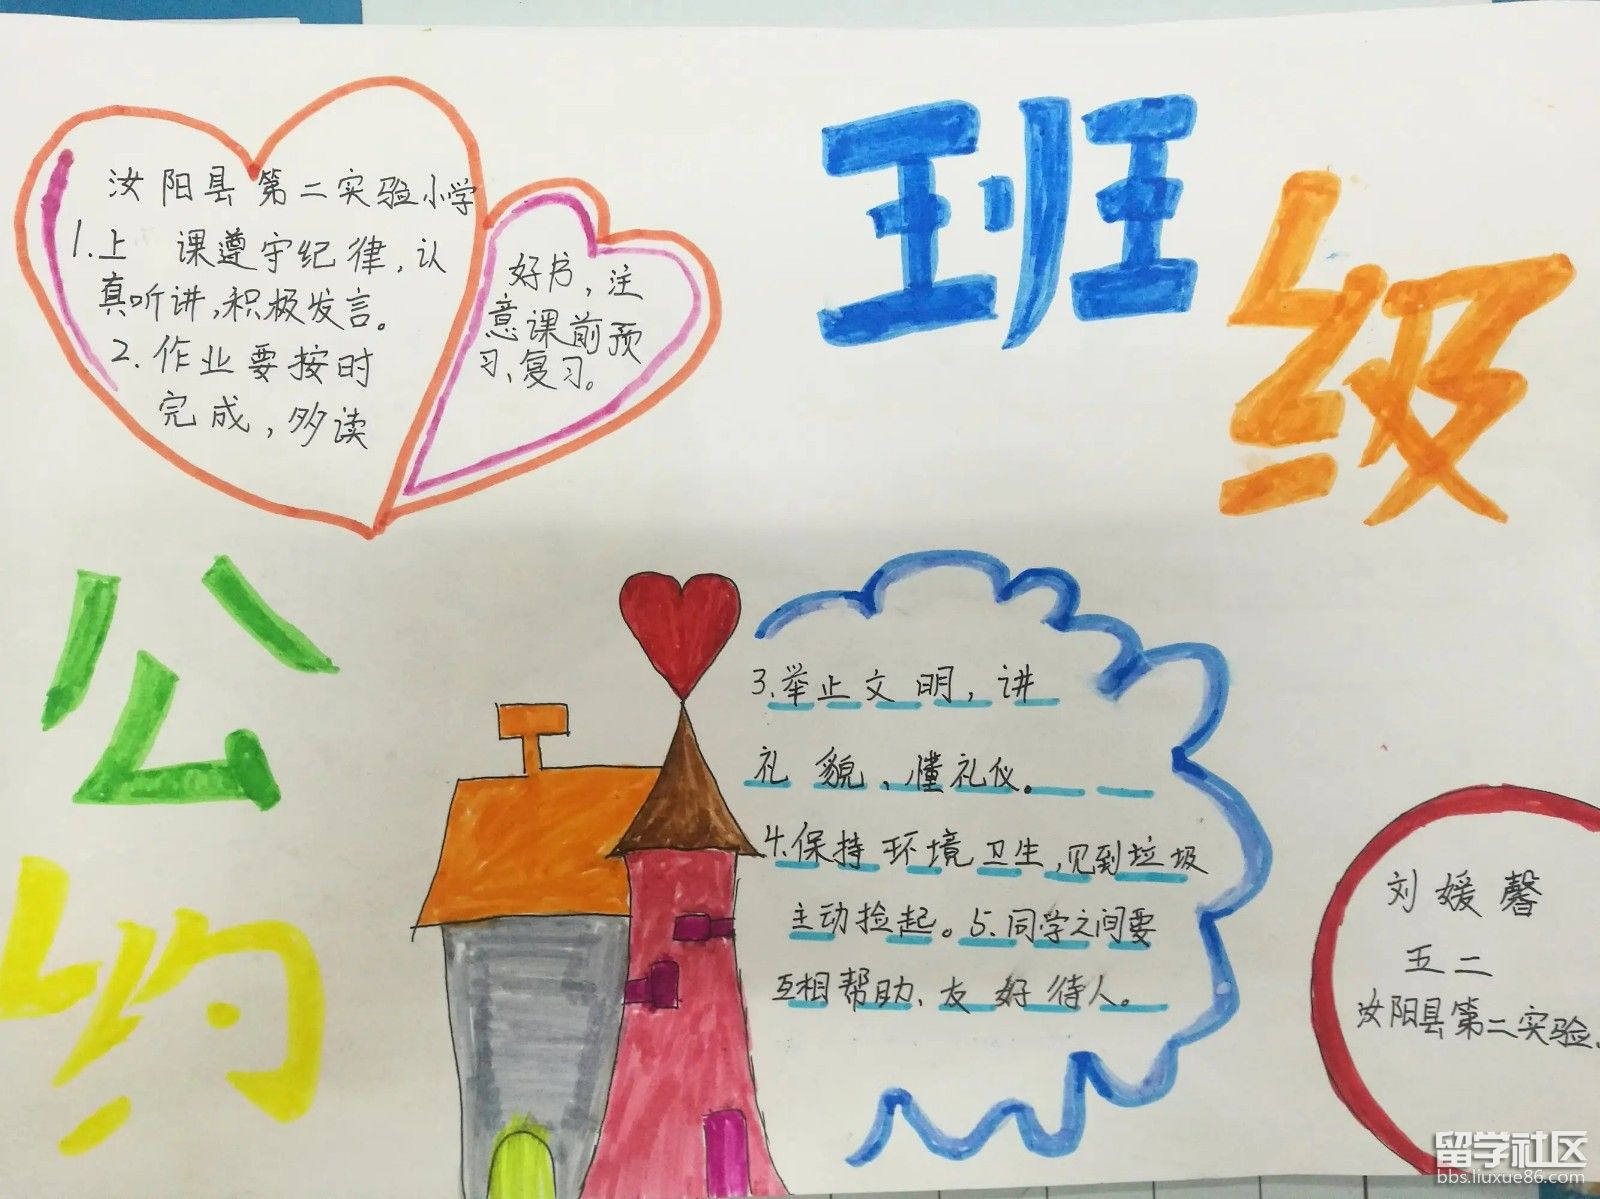 班级
公约
汝阳县第二实验小学
1.上 课遵守纪律,认
真听讲,积极发言。
2.作业要按时
完成,多读
好书,注
意课前预
习、复习。
3.举止文明,讲
礼貌、懂礼仪。
4.保持环境卫生,见到垃圾
主动捡起。5.同学之间要
互相帮助、友好待人。
刘媛馨
五二
汝阳县第二实验
留学社区
bbs.liuxue86.com